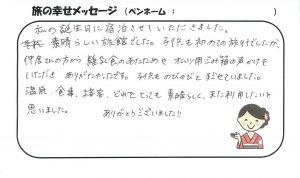 旅の幸せメッセージ（ペンネーム：　　　　　　　　）
私の誕生日に宿泊させていただきました。
素晴らしい旅館でした。子供も初めての旅行でしたが、
仲居さんの方から離乳食のあたためや オムツ用ゴミ箱の声かけを
いただき ありがたかったです。子供ものびのびと すごせていました。
温泉・食事、接客、どれをとっても 素晴らしく、また利用したいと
思いました。　ありがとうございました!!